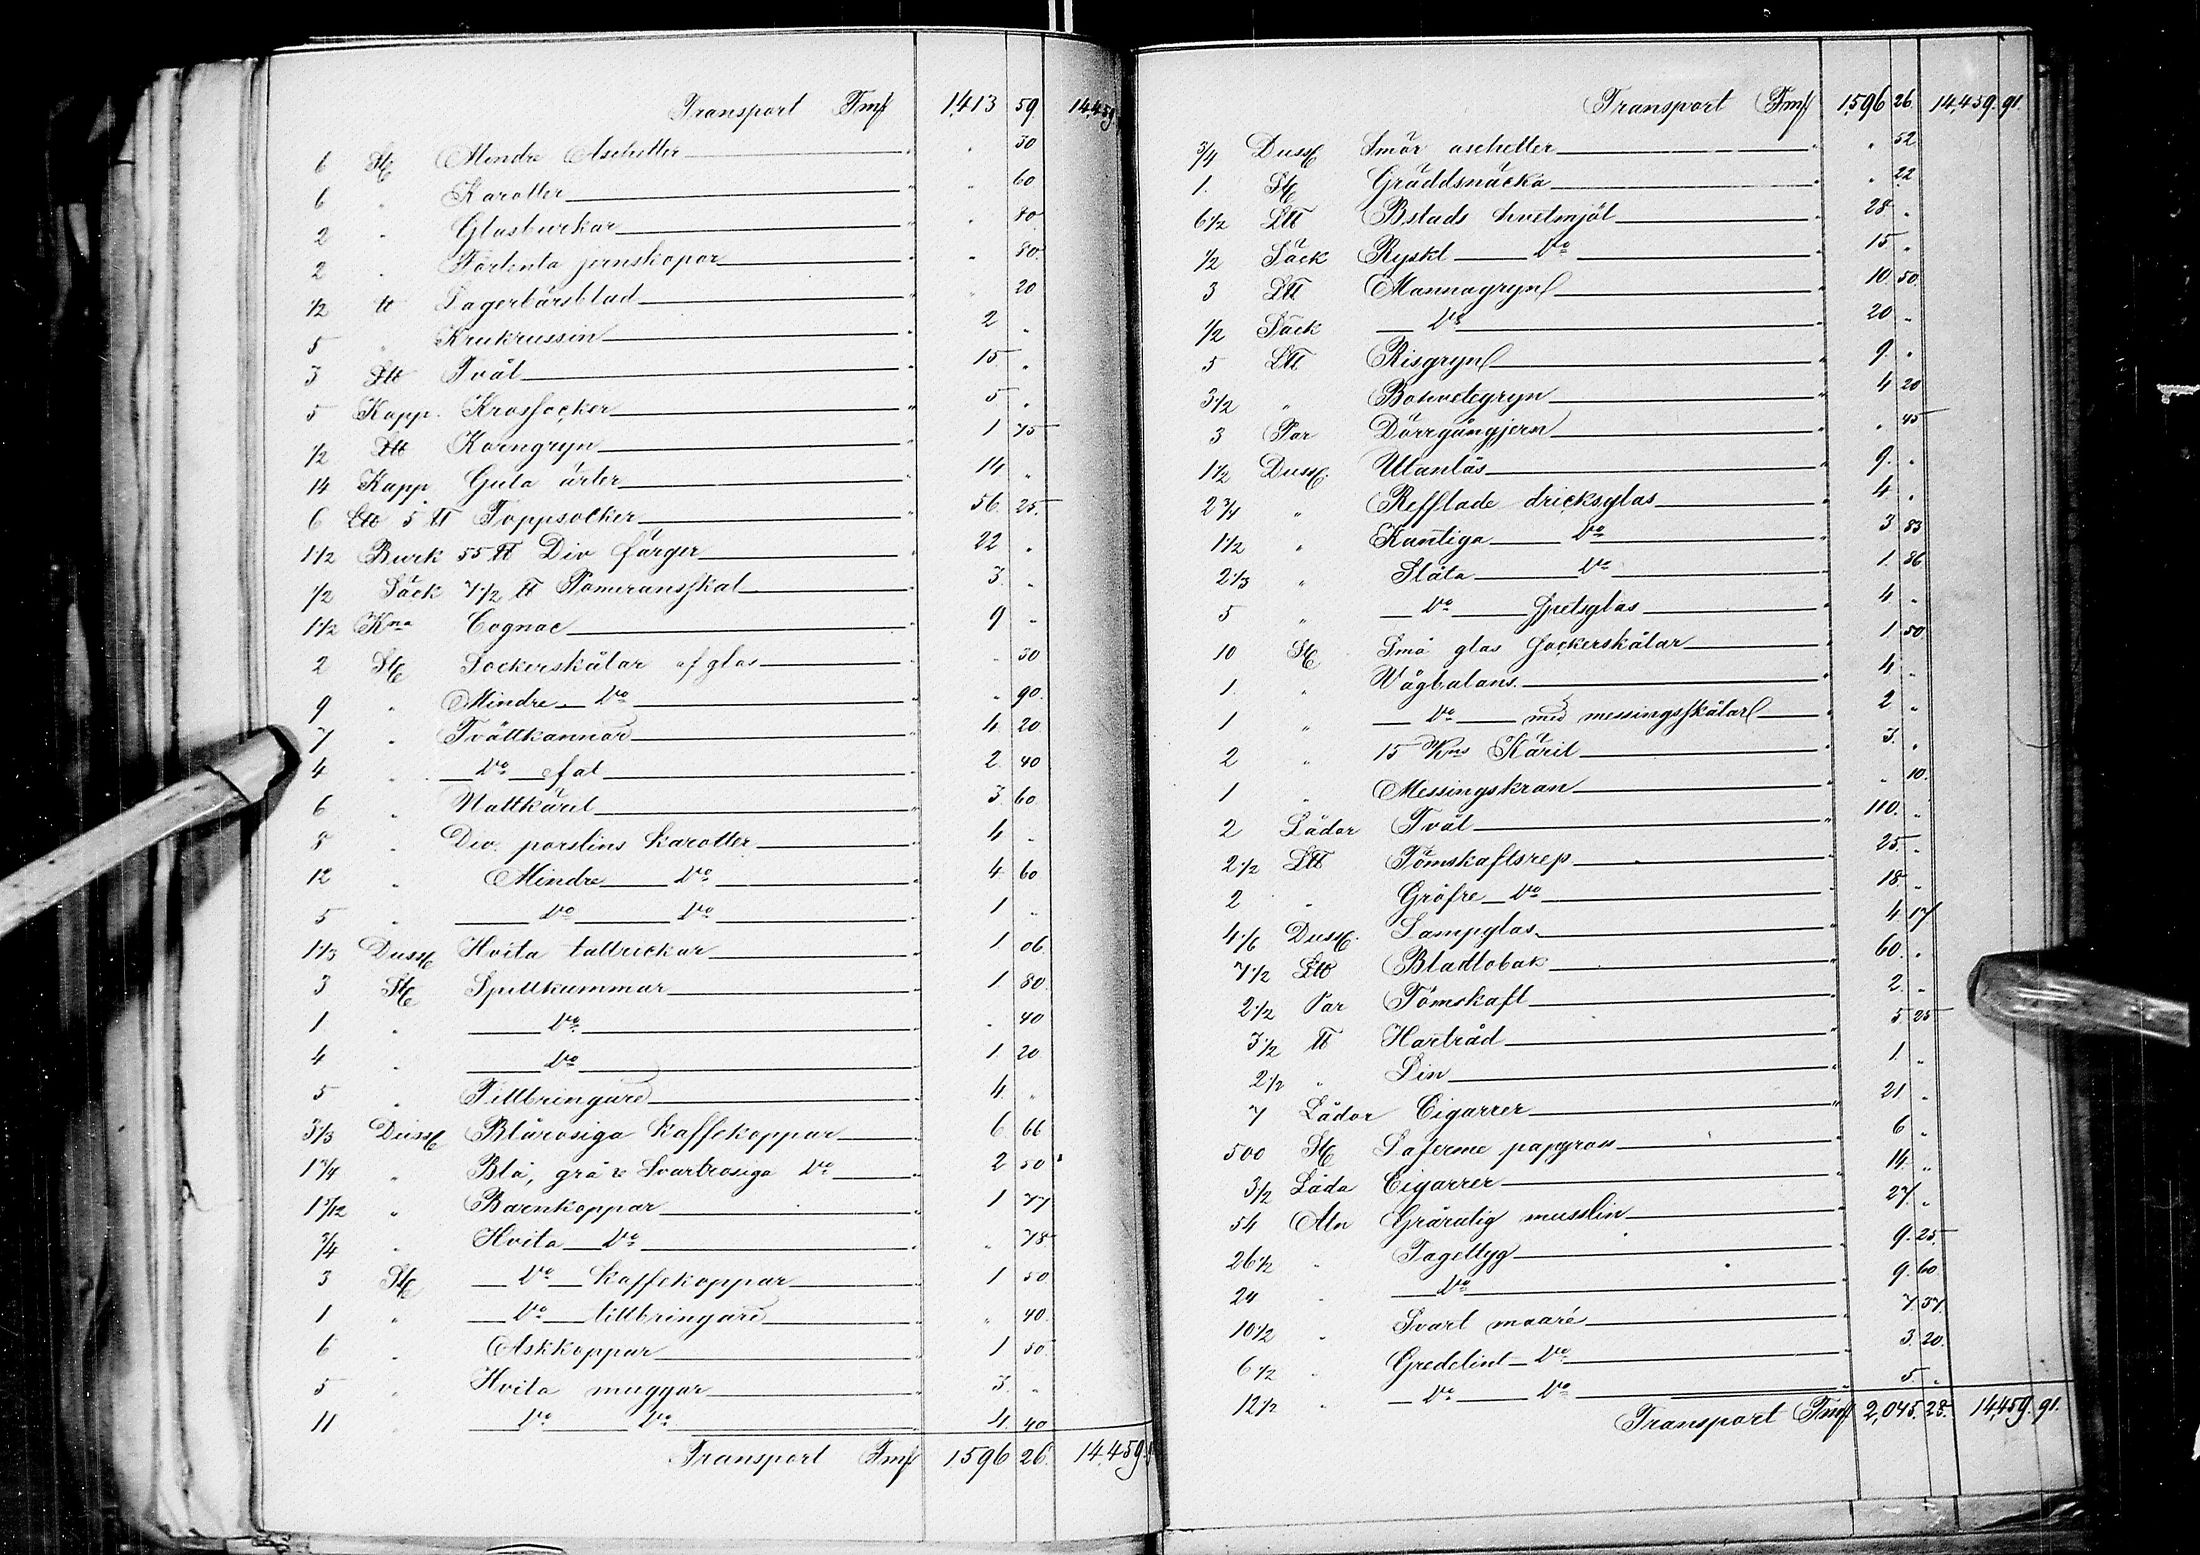 Transport Fmk 1,413 59 14,459
6 St Mindre Aschetter " 30
6 " Karotter " 60
2 " Glasburkar " 80
2 " Förtenta jernskopor " 80
1/2 ℔ Lagerbärsblad " 20
5 " Krukrussin 2 "
3 L℔ Tvål 15 "
5 Kapp. Krossocker 5 "
1/2 L℔ Korngryn 1 75
14 Kapp Gula ärter 14 "
6 L℔ 5 ℔ Toppsocker 56 25
1 1/2 Burk 55 ℔ Div färger 22 "
1/2 Säck 7 1/2 ℔ Pomeransskal 3 "
1 1/2 Kna Cognac 9 "
2 St Sockerskålar af glas " 30
9 " Mindre Do " 90
7 " Tvättkannor 4 20
4 " Do fat 2 40
6 " Nattkäril 3 60
8 " Div. porslins karotter 4 "
12 " Mindre Do 4 60
5 " Do Do 1 "
1 1/3 Duss Hvita tallrickar 1 06
3 St Spillkummar 1 80
1 " Do " 40
4 " Do 1 20
5 " Tillbringare 4 "
3 1/3 Duss Blårosiga kaffekoppar 6 66
1 3/4 " Blå, grå & Svartrosiga Do 2 50
1 5/12 " Barnkoppar 1 77
3/4 " Hvita Do " 78
3 St Do Kaffekoppar 1 50
1 " Do tillbringare " 40
6 " Askkoppar 1 50
5 " Hvita muggar 3 "
11 " Do Do 4 40
Transport Fmk 1596 26 14,459
Transport Fmk 1,596 26 14,459 91
3/4 Duss Smör aschetter " 52
1 St Gräddsnäcka " 22
6 1/2 L℔ Bstads hvetmjöl 28 "
1/2 Säck Ryskt Do 15 "
3 L℔ Mannagryn 10 50
1/2 Säck Do 20 "
5 L℔ Risgryn 9 "
3 1/2 " Bohvetegryn 4 20
3 Par Dörrgångjern " 45
1 1/2 Duss Utanlås 9 "
2 3/4 " Refflade dricksglas 4 "
1 1/2 " Kantiga Do 3 83
2 1/3 " Släta Do 1 86
5 " Do Spetsglas 4 "
10 St Små glas Sockerskålar 1 50
1 " Vågbalans 4 "
1 " Do med messingsskålar 2 "
2 " 15 Kns Käril 3 "
1 " Messingskran " 10
2 Lådor Tvål 110 "
2 1/2 L℔ Tömskaftsrep 25 "
2 " Gröfre Do 18 "
4 1/6 Duss Lampglas 4 17
7 1/2 L℔ Bladtobak 60 "
2 1/2 Par Tömskaft 2 "
3 1/2 ℔ Hartråd 5 25
2 1/2 " Lin 1 "
7 Lådor Cigarrer 21 "
500 St Laferme papyross 6 "
3/2 Låda Cigarrer 14 "
54 Aln Grårutig musslin 27 "
26 1/2 " Tageltyg 9 25
24 " Do 9 60
10 1/2 " Svart maaré 7 37
6 1/2 " Gredelint Do 3 20
12 1/2 " Do Do 5 "
Transport Fmk 2,045 28 14,459 91